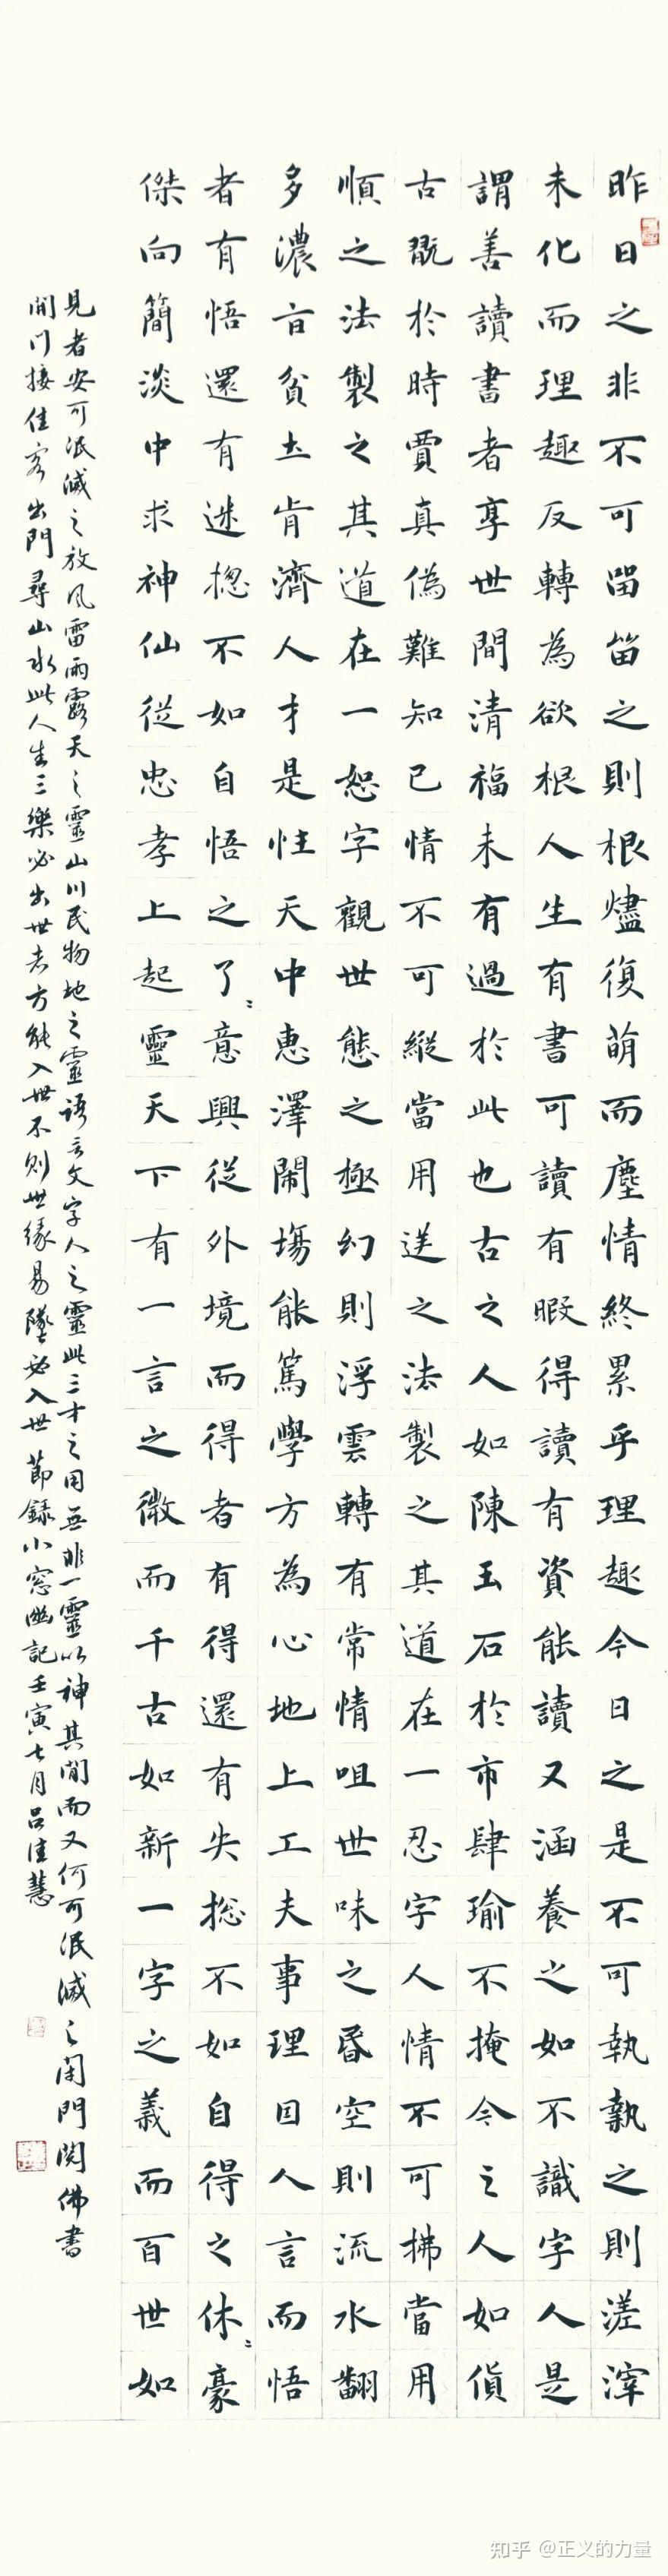 昨日之非不可留留之則根燼復萌而塵情終累乎理趣今日之是不可執執之則渣滓
未化而理趣反轉為欲根人生有書可讀有暇得讀有資能讀又涵養之如不識字人是
謂善讀書者享世間清福未有過於此也古之人如陳玉石於市肆瑜不掩今之人如貨
古翫於時賈真偽難知己情不可縱當用逆之法製之其道在一忍字人情不可拂當用
順之法製之其道在一恕字觀世態之極幻則浮雲轉有常情咀世味之昏空則流水翻
多濃旨貧士肯濟人才是性天中惠澤鬧場能篤學方為心地上工夫事理因人言而悟
者有悟還有迷揔不如自悟之了〻意興從外境而得者有得還有失揔不如自得之休〻豪
傑向簡淡中求神仙從忠孝上起靈天下有一言之微而千古如新一字之義而百世如
見者安可泯滅之故風雷雨露天之靈山川民物地之靈語言文字人之靈此三才之用無非一靈以神其間而又何可泯滅之閉門閱佛書
開門接佳客出門尋山水此人生三樂必出世者方能入世不則世緣易墜必入世 節錄小窓幽記壬寅七月呂佳慧
知乎 @正义的力量